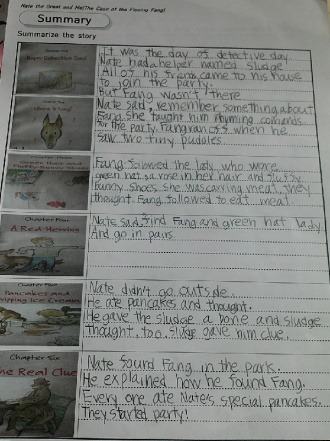 Nate the Great and Me(The Case of the Fleeing Fang)
Summary
Summarize the story
It was the day of detective day.
Nate had a helper named Sludge
All of his friens came to his house
to join the party.
But Fang wasn't there
Nate said, remember something about
Fang. She taught him rhyming comands
for the party. Fang ran off when he
saw two tiny puddles.
Fang followed the lady who wore
green hat, a rose in her hair and fluffy
bunny shoes she was carring meat. they
thought Fang followed to eat meat.
Chapter Four
A Red Herring
Nate said, find Fang and green hat lady
And go in pairs.
Chapter Five
Pancakes and
Dripping Ice Creams
Nate didn't go outside.
He ate pancakes and thought.
He gave the sludge a bone and sludge
thought, too. sludge gave him clue.
Chapter Six
The Real Clue
Nate found Fang in the park.
He explained how he found Fang.
Every one ate Nate's special pancakes.
They started party!